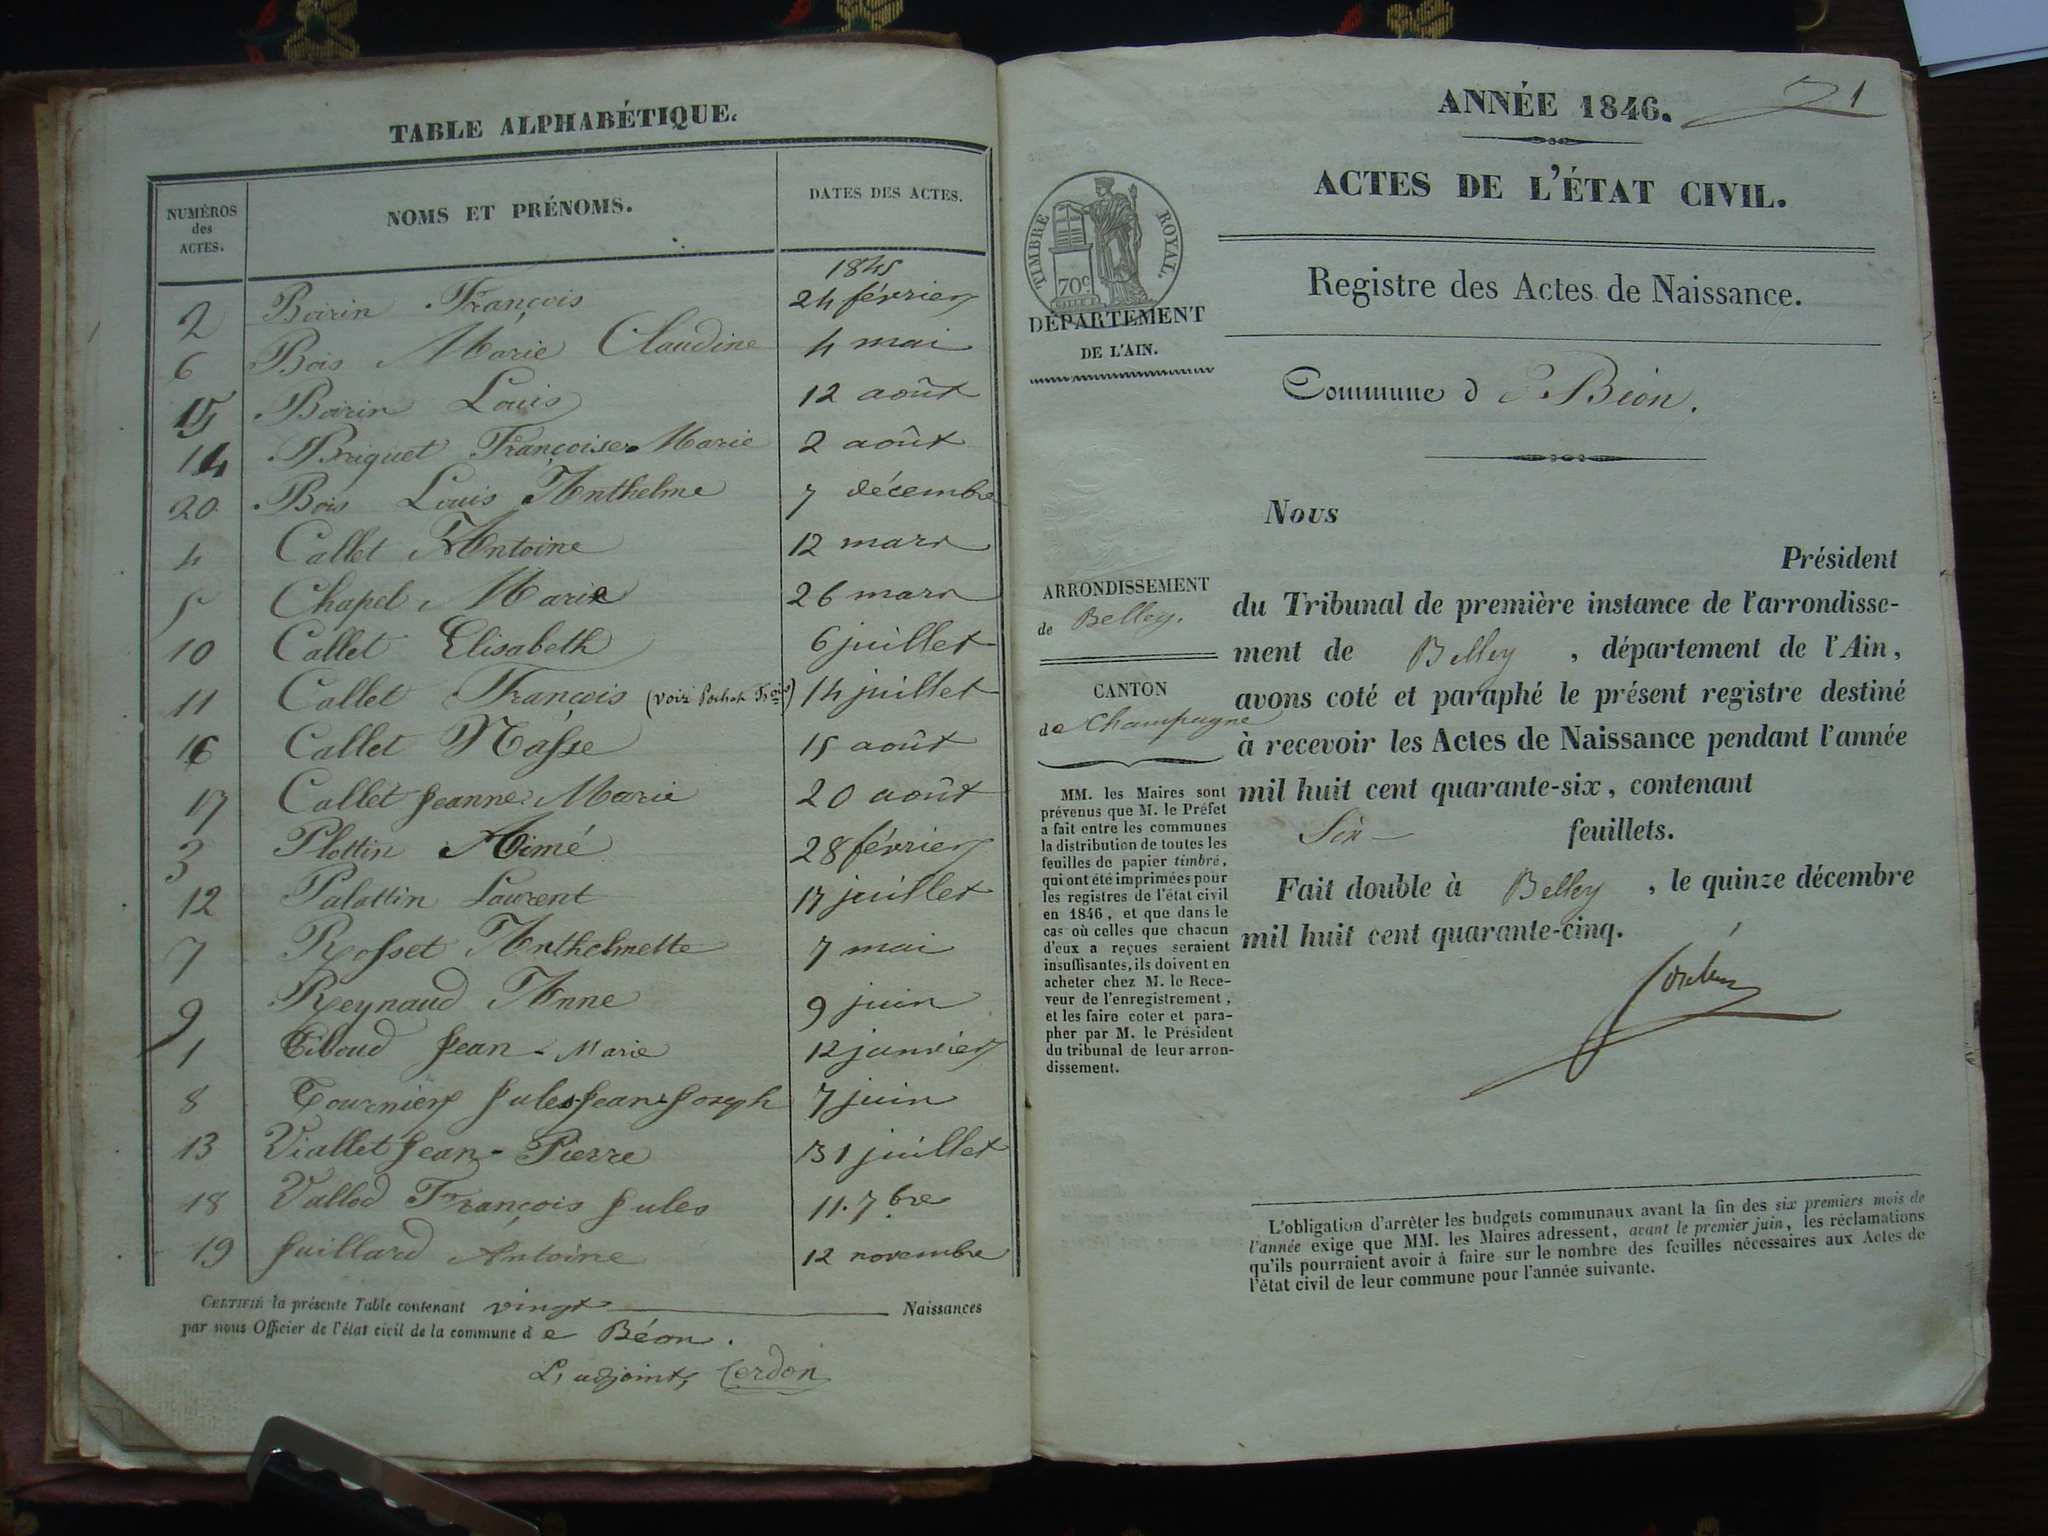 TABLE ALPHABÉTIQUE.
NUMÉROS des ACTES. NOMS ET PRÉNOMS. DATES DES ACTES.
1845
2 Boirin François 24 février
6 Bois Marie Claudine 4 mai
15 Boirin Louis 12 août
14 Briquet Françoise Marie 2 août
20 Bois Louis Anthelme 7 décembre
4 Callet Antoine 12 mars
5 Chapel Marie 26 mars
10 Callet Elisabeth 6 juillet
11 Callet François (voir Pochet Frois) 14 juillet
16 Callet 15 août
17 Callet Jeanne Marie 20 août
3 Plottin Aimé 28 février
12 Palottin Laurent 17 juillet
7 Rosset Anthelmette 7 mai
9 Reynaud Anne 9 juin
1 Tiboud Jean-Marie 12 janvier
8 Tournier Jules Jean Joseph 7 juin
13 Viallet Jean-Pierre 31 juillet
18 Vallod François Jules 11. 7bre
19 Juillard Antoine 12 novembre
CERTIFIÉ la présente Table contenant vingt Naissances
par nous Officier de l'état civil de la commune de Béon.
L'adjoint, Cerdon
ANNÉE 1846. 1
ACTES DE L'ÉTAT CIVIL.
TIMBRE ROYAL.
70c
DÉPARTEMENT
DE L'AIN.
Registre des Actes de Naissance.
Commune de Béon.
ARRONDISSEMENT
de Belley.
CANTON
de Champagne
MM. les Maires sont
prévenus que M. le Préfet
a fait entre les communes
la distribution de toutes les
feuilles de papier timbré,
qui ont été imprimées pour
les registres de l'état civil
en 1846, et que dans le
cas où celles que chacun
d'eux a reçues seraient
insuffisantes, ils doivent en
acheter chez M. le Rece-
veur de l'enregistrement,
et les faire coter et para-
pher par M. le Président
du tribunal de leur arron-
dissement.
Nous
Président
du Tribunal de première instance de l'arrondisse-
ment de Belley, département de l'Ain,
avons coté et paraphé le présent registre destiné
à recevoir les Actes de Naissance pendant l'année
mil huit cent quarante-six, contenant
Six feuillets.
Fait double à Belley, le quinze décembre
mil huit cent quarante-cinq.
L'obligation d'arrêter les budgets communaux avant la fin des six premiers mois de
l'année exige que MM. les Maires adressent, avant le premier juin, les réclamations
qu'ils pourraient avoir à faire sur le nombre des feuilles nécessaires aux Actes de
l'état civil de leur commune pour l'année suivante.